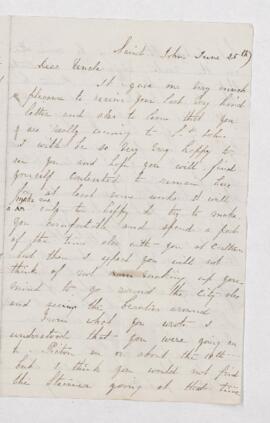 Saint John June 25th
Dear Uncle
It gave me very much
pleasure to receive your last very kind
letter and also to learn that you
are really coming to St John
I will be so very very happy to
see you and hope you will find
yourself contented to remain here
for at least some weeks it will
make me
only to happy to try to make
you comfortable and spend a part
of the time also with you at
but then I expect you will not
think of not making up your
mind to go round the City also
and seeing the beauties around
From what you wrote I
understood that you were going on
to Picton on or about the 10th
but I think you would not find
the Steamer going at that time